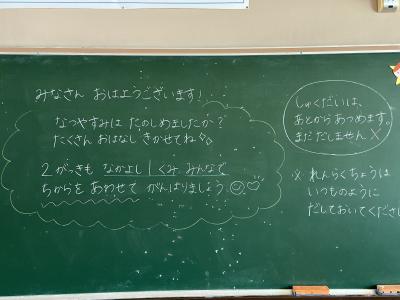 みなさん おはようございます!
なつやすみは たのしめましたか?
たくさん おはなし きかせてね
2がっきも なかよし1くみ みんなで
ちからを あわせて がんばりましょう
しゅくだいは、
あとから あつめます。
まだ だしません ×
※ れんらくちょうは
いつものように
だしておいてくださ